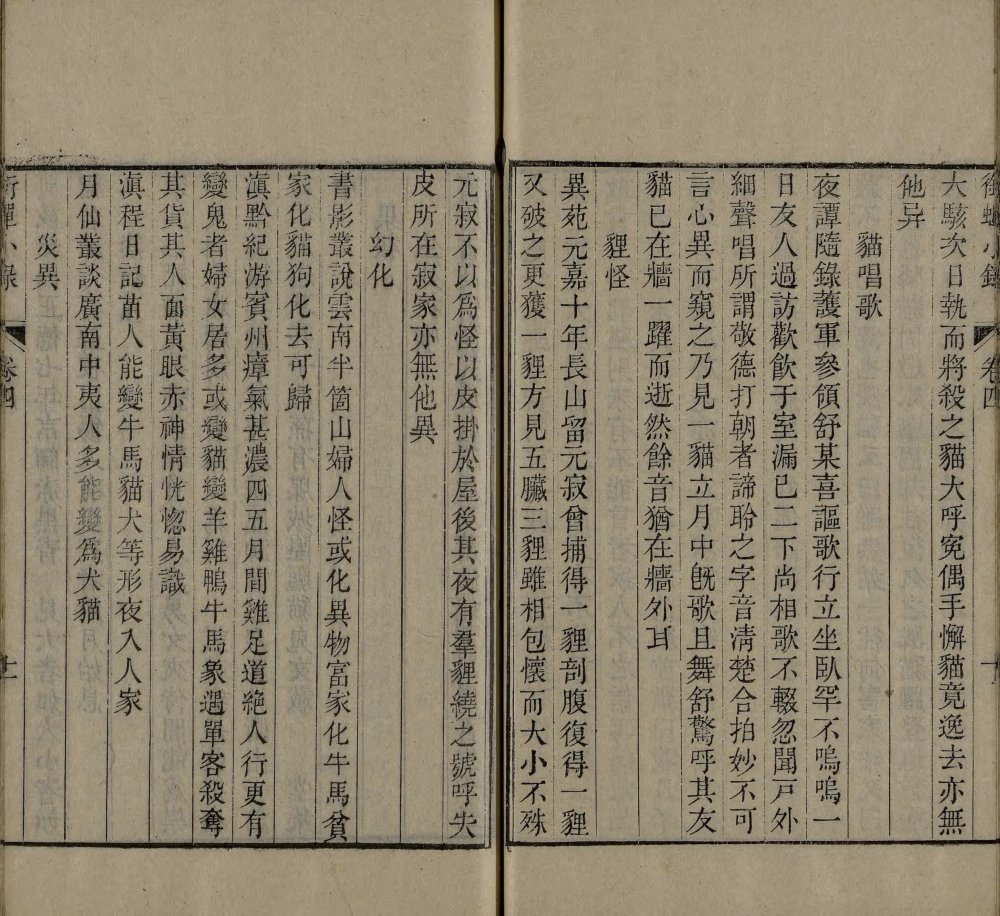 銜蟬小錄 卷四 十
大駭次日執而將殺之貓大呼寃偶手懈貓竟逸去亦無
他异
貓唱歌
夜譚隨錄護軍參領舒某喜謳歌行立坐臥罕不嗚嗚一
日友人過訪歡飲于室漏已二下尚相歌不輟忽聞戸外
細聲唱所謂敬德打朝者諦聆之字音清楚合拍妙不可
言心異而窺之乃見一貓立月中旣歌且舞舒驚呼其友
貓已在牆一躍而逝然餘音猶在牆外耳
貍怪
異苑元嘉十年長山留元寂曾捕得一貍剖腹復得一貍
又破之更獲一貍方見五臟三貍雖相包懷而大小不殊
元寂不以爲怪以皮掛於屋後其夜有羣貍繞之號呼失
皮所在寂家亦無他異
幻化
書影叢說雲南半箇山婦人怪或化異物富家化牛馬貧
家化貓狗化去可歸
滇黔紀游賓州瘴氣甚濃四五月間雞足道絶人行更有
變鬼者婦女居多或變貓變羊雞鴨牛馬象遇單客殺奪
其貨其人面黃眼赤神情恍惚易識
滇程日記苗人能變牛馬貓犬等形夜入人家
月仙叢談廣南中夷人多能變爲犬貓
災異
銜蟬小錄 卷四 十一